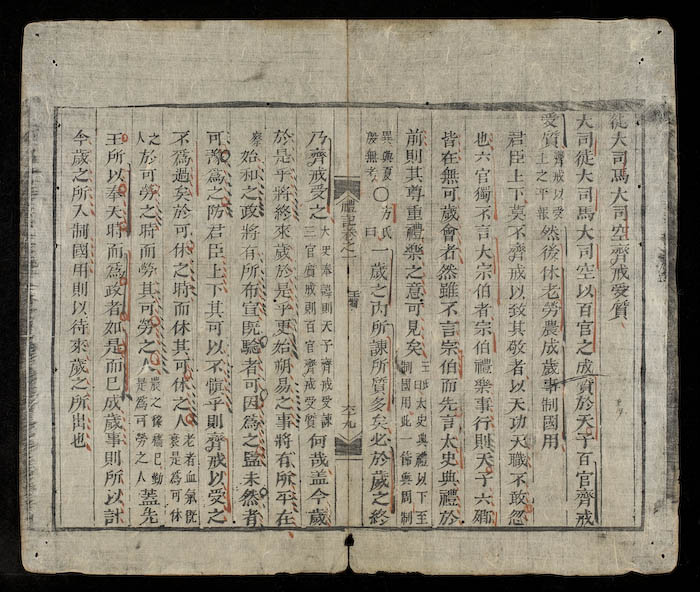 徒大司馬大司空齊戒受質
大司徒大司馬大司空以百官之成質於天子百官齊戒
受質齊戒以受上之平報然後休老勞農成歲事制國用
君臣上下莫不齊戒以致其敬者以天功天職不敢忽
也六官獨不言大宗伯者宗伯禮樂事行則天子六卿
皆在無可歲會者然雖不言宗伯而先言太史典禮於
前則其尊重禮樂之意可見矣王曰太史典禮以下至制國用此一條與周制
異與夏殷無考○方氏曰一歲之内所諫所質多矣必於歲之終
禮記卷之一 王制 六十九
乃齊戒受之大史奉諱則天子齊戒受諫三官質戒則百官齊戒受質何哉蓋今歲
於是乎將終來歲於是乎更始朔易之事將有所平在
察始和之政將有所布宣既驗者可因為之監未然者
可豫為之防君臣上下其可以不慎乎則齊戒以受之
不為過矣於可休之時而休其可休之人老者血氣既衰是為可休
之人於可勞之時而勞其可勞之人農之稼穡已勤是為可勞之人蓋先
王所以奉天時而為政者如是而已成歲事則所以計
今歲之所入制國用則以待來歲之所出也